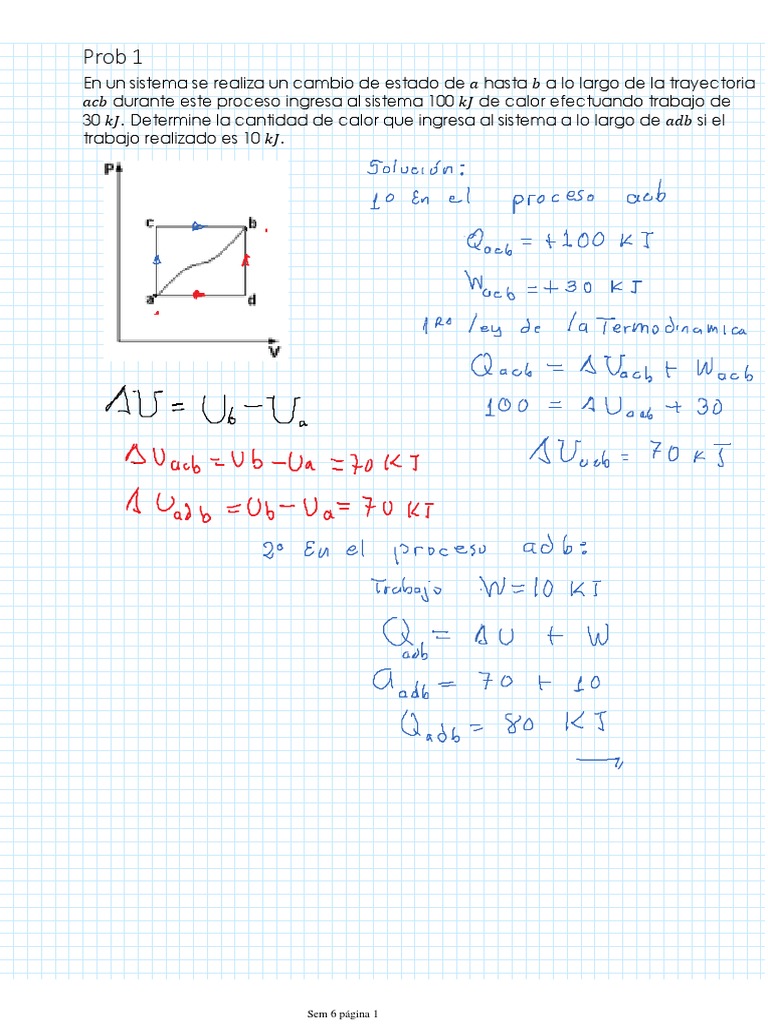 Prob 1
En un sistema se realiza un cambio de estado de a hasta b a lo largo de la trayectoria
acb durante este proceso ingresa al sistema 100 kJ de calor efectuando trabajo de
30 kJ. Determine la cantidad de calor que ingresa al sistema a lo largo de adb si el
trabajo realizado es 10 kJ.
P
c b
a d
V
Solución:
1º En el proceso acb
Qacb = +100 KJ
Wacb = +30 KJ
1Rº ley de la Termodinamica
Qacb = ΔUacb + Wacb
100 = ΔUacb + 30
ΔUacb = 70 KJ
ΔU = Ub - Ua
ΔUacb = Ub - Ua = 70 KJ
ΔUadb = Ub - Ua = 70 KJ
2º En el proceso adb:
Trabajo W = 10 KJ
Qadb = ΔU + W
Qadb = 70 + 10
Qadb = 80 KJ
Sem 6 página 1